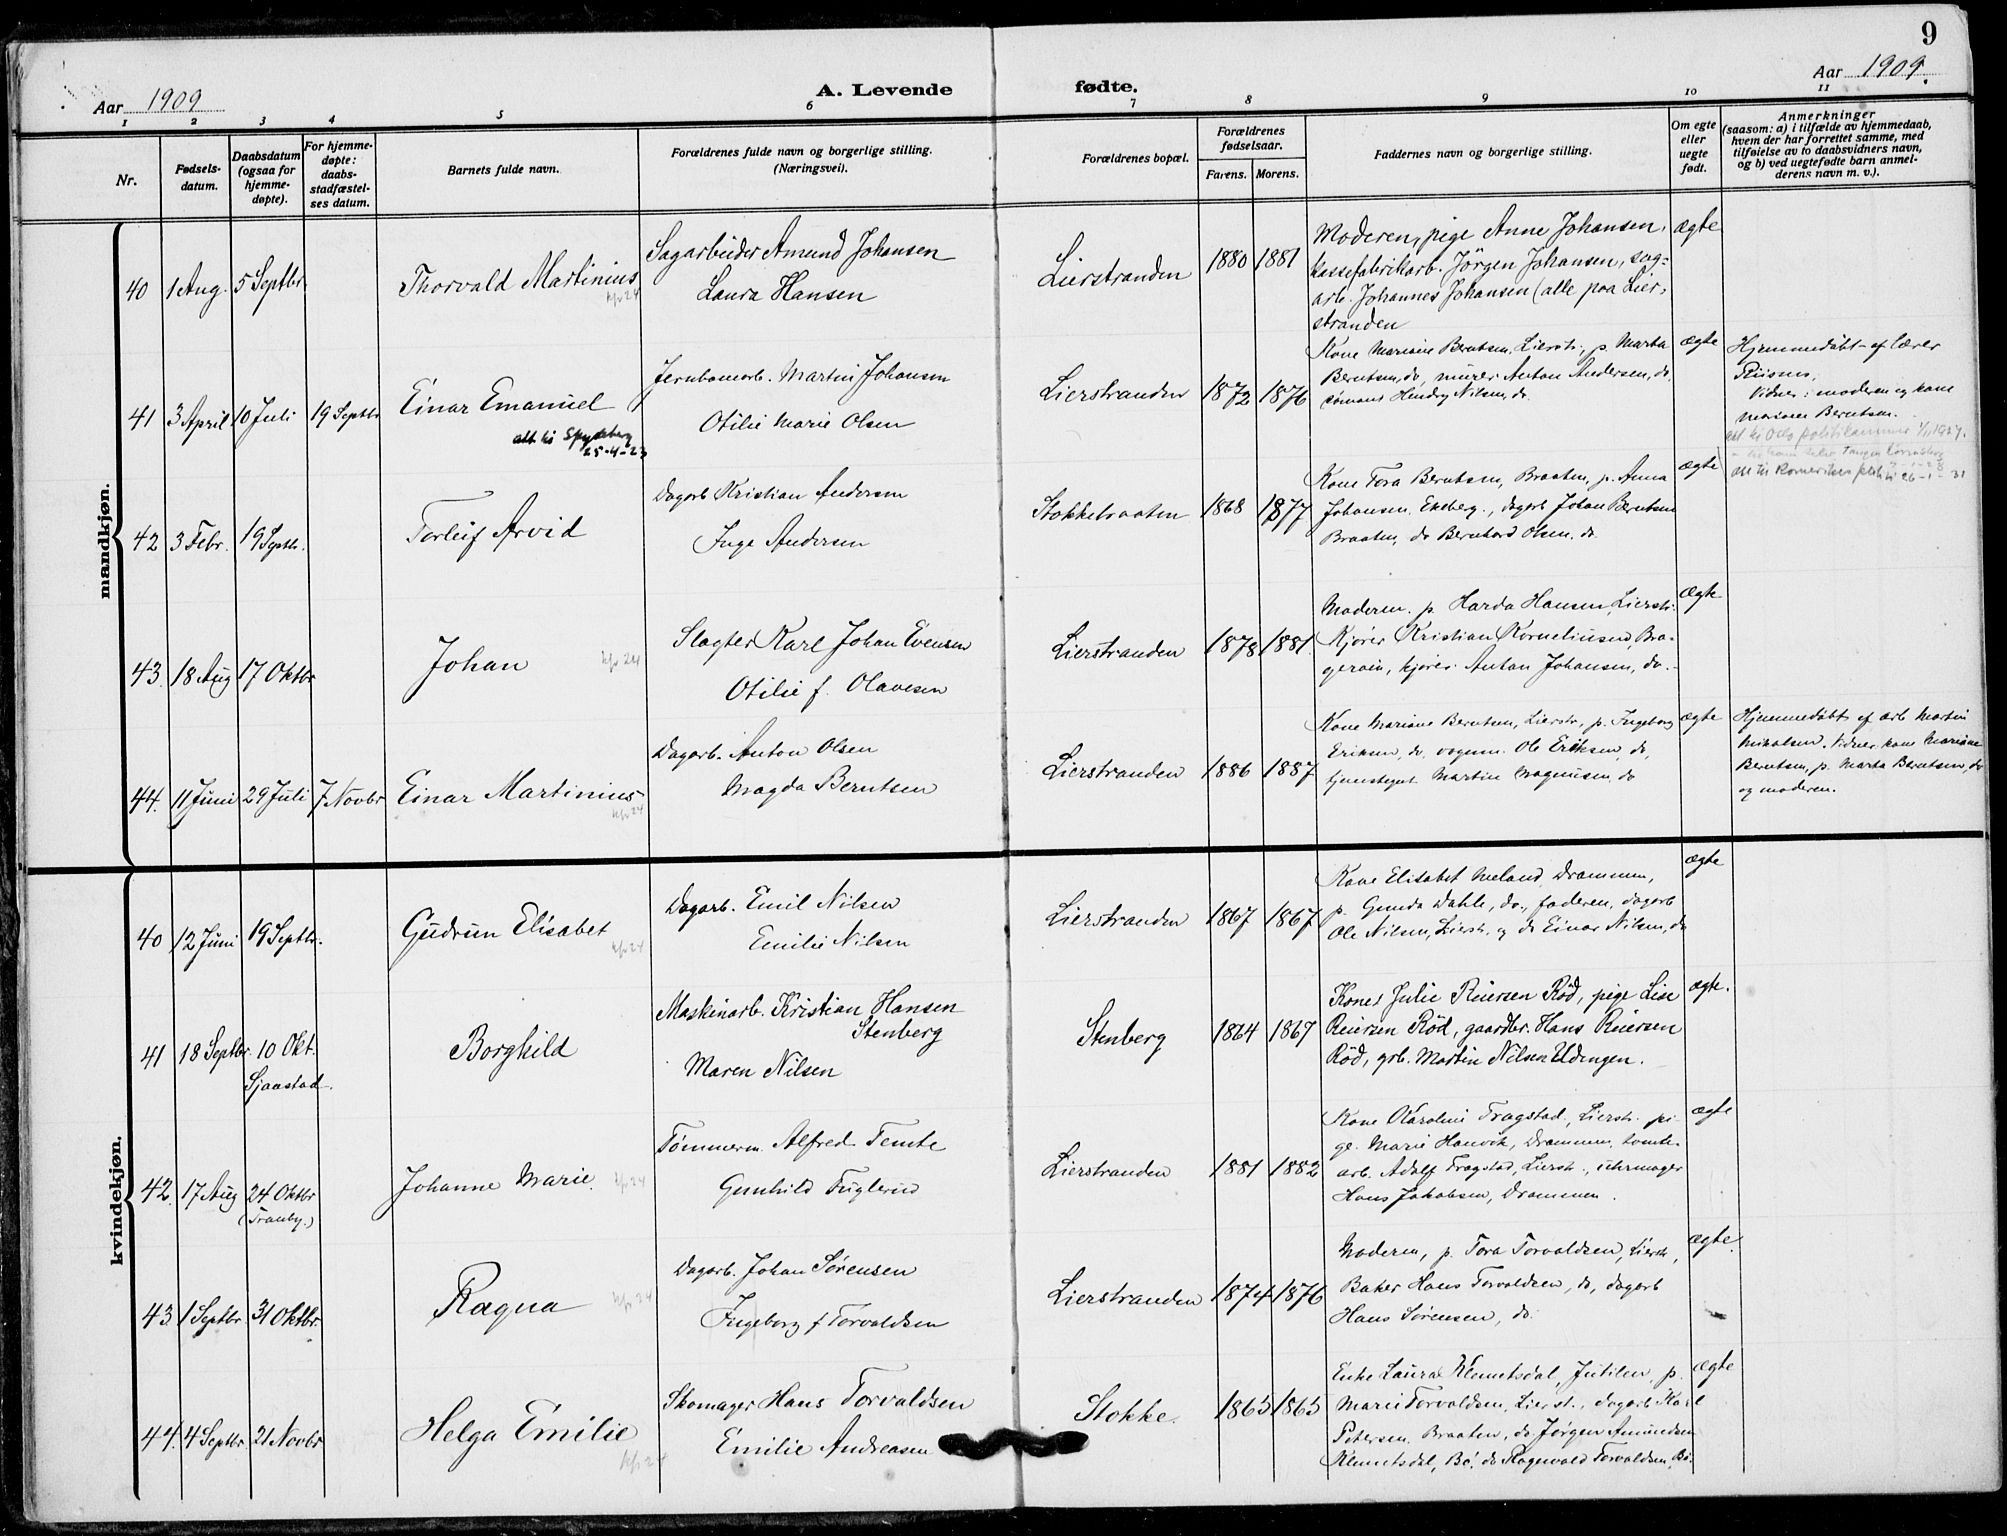 9
Aar 1909
A. Levende fødte.
Aar 1909.
1 2 3 4 5 6 7 8 9 10 11
Nr.
Fødsels-
datum.
Daabsdatum
(ogsaa for
hjemme-
døpte).
For hjemme-
døpte:
daabs-
stadfæstel-
ses datum.
Barnets fulde navn.
Forældrenes fulde navn og borgerlige stilling.
(Næringsvei).
Forældrenes bopæl.
Forældrenes
fødselsaar.
Farens. Morens.
Faddernes navn og borgerlige stilling.
Om egte
eller
uegte
født.
Anmerkninger
(saasom: a) i tilfælde av hjemmedaab,
hvem der har forrettet samme, med
tilføielse av to daabsvidners navn,
og b) ved uegtefødte barn anmel-
derens navn m. v.).
mandkjøn.
40 1 Aug. 5 Septbr.
Thorvald Martinius
Sagarbeider Amund Johansen
Laura Hansen
Lierstranden 1880 1881
Moderen, pige Anne Johansen,
Kassefabrikarb. Jörgen Johansen, sag-
arb. Johannes Johansen (alle paa Lier-
stranden
ægte
41 3 April 10 Juli 19 Septbr
Einar Emanuel
att til Spydeberg
25-4-23
Jernbanearb. Martin Johansen
Otilie Marie Olsen
Lierstranden 1872 1876
Kone Mariane Berntsen, Lierstr., p. Marta
Berntsen, do, murer Anton Andersen, do,
sömand Hendry Nilsen, do.
ægte
Hjemmedöbt af lærer
Riisnes,
Vidner: moderen og kone
Mariane Berntsen.
att til Oslo politikammer 1/11 1927.
42 3 Febr. 19 Septbr.
Torleif Arvid
Dagarb Kristian Andersen
Inge Andersen
Stokkebraaten 1868 1877
Kone Tora Berntsen, Braaten, p. Anna
Johansen, Ekeberg., dagarb Johan Berntsen
Braaten, do Bernhard Olsen. do.
ægte
43. 18 Aug 17 Oktbr
Johan
Slagter Karl Johan Evensen
Otilie f. Olavesen
Lierstranden 1878 1881
Moderen. p. Harda Hansen, Lierstr.
Kjører Kristian Korneliusen, Bra-
gerøen, kjører. Anton Johansen, do.
ægte
44. 11 Juni 29 Juli 7 Novbr
Einar Martinius
Dagarb. Anton Olsen
Magda Berntsen
Lierstranden 1886 1887
Kone Mariane Berntsen, Lierstr, p. Ingeborg
Eriksen, do, vognm. Ole Eriksen, do,
tjenestegut Martin Magnusen, do
ægte
Hjemmedöbt af arb Martin
Mikalsen. Vidner kone Mariane
Berntsen, p. Marta Berntsen, do
og moderen.
kvindekjøn.
40 12 Juni 19 Septbr.
Gudrun Elisabet
Dagarb. Emil Nilsen
Emilie Nilsen
Lierstranden 1867 1867
Kone Elisabet Meland Drammen,
p. Gunda Dahle, do., faderen, dagarb
Ole Nilsen, Lierstr. og do Einar Nilsen, do
ægte
41 18 Septbr. 10 Okt.
Sjaastad.
Borghild
Maskinarb. Kristian Hansen
Stenberg
Maren Nilsen
Stenberg 1864 1867
Kone Julie Reiersen Röd, pige Lise
Reiersen Röd, gaardbr. Hans Reiersen
Röd, grb. Martin Nilsen Udengen.
ægte.
42. 17 Aug 24 Oktbr
(Tranby.)
Johanne Marie.
Tömmerm Alfred Temte
Gunhild Fuglerud
Lierstranden 1881 1882
Kone Karoline Tragstad, Lierstr. pi-
ge. Marie Hanvik, Drammen, tomte-
arb. Adolf Tragstad, Lierstr.., uhrmager
Hans Jakobsen, Drammen.
ægte
43 1 Septbr 31 Oktbr.
Ragna
Dagarb. Johan Sörensen
Ingeborg f Torvaldsen
Lierstranden 1874 1876
Moderen, p. Tora Torvaldsen, Lierstr,
Baker Hans Torvaldsen, do, dagarb
Hans Sörensen, do.
ægte.
44. 4 Septbr 21 Novbr
Helga Emilie
Skomager Hans Torvaldsen
Emilie Andreasen
Stokke. 1863 1865
Enke Laura Klemetsdal, Jutilen, p.
Marie Torvaldsen, Lierst., dagarb Karl
Petersen. Braaten, do Jørgen Amundsen
Klemetsdal, Bö, do Ragnvald Torvaldsen, Bö.
ægte